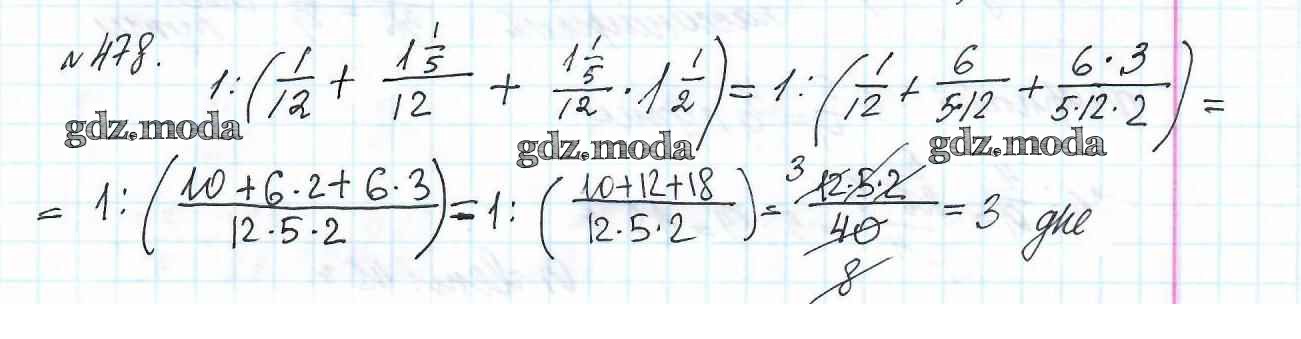 №478. 1:(1/12 + 1 1/5/12 + 1 1/5/12 · 1 1/2) = 1:(1/12 + 6/5·12 + 6·3/5·12·2) =
gdz.moda gdz.moda gdz.moda
= 1:(10+6·2+6·3/12·5·2) = 1:(10+12+18/12·5·2) = 3 12·5·2/40 8 = 3 дне